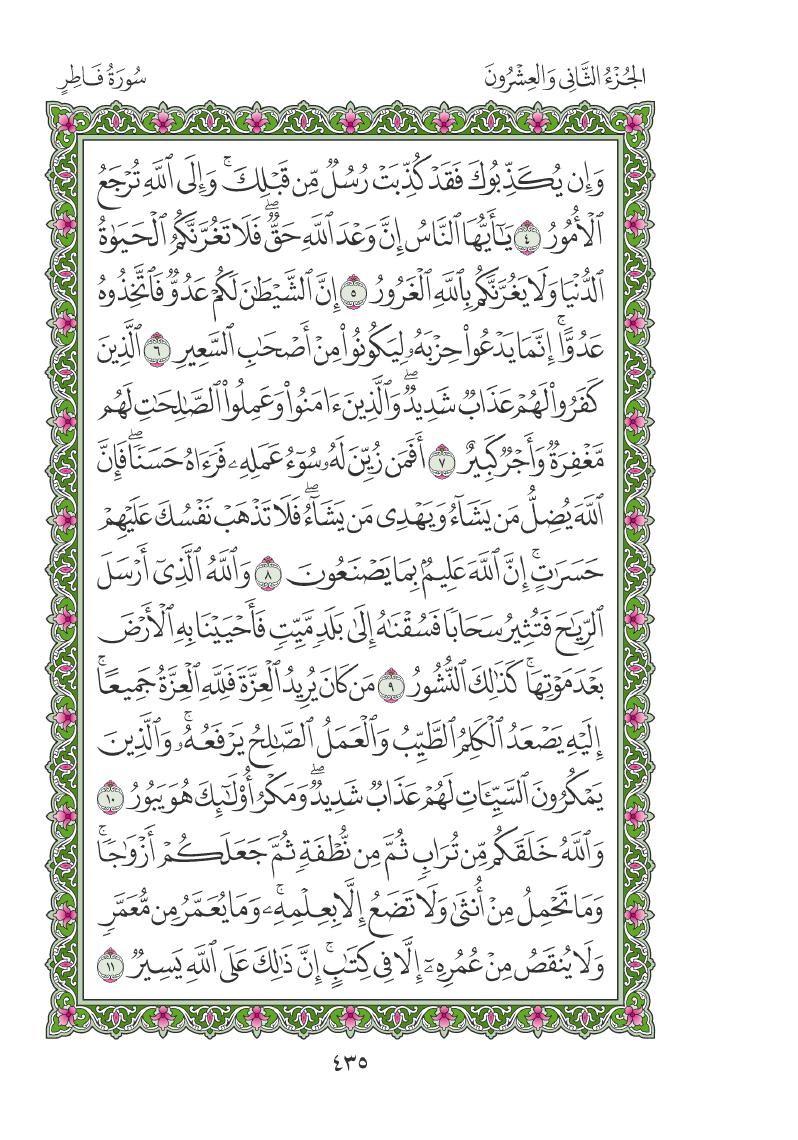 الجُزْءُ الثَّانِي وَالعِشْرُونَ
سُورَةُ فَاطِرٍ
وَإِن يُكَذِّبُوكَ فَقَدْ كُذِّبَتْ رُسُلٌ مِّن قَبْلِكَ ۚ وَإِلَى ٱللَّهِ تُرْجَعُ
ٱلْأُمُورُ ٤ يَـٰٓأَيُّهَا ٱلنَّاسُ إِنَّ وَعْدَ ٱللَّهِ حَقٌّ ۖ فَلَا تَغُرَّنَّكُمُ ٱلْحَيَوٰةُ
ٱلدُّنْيَا وَلَا يَغُرَّنَّكُم بِٱللَّهِ ٱلْغَرُورُ ٥ إِنَّ ٱلشَّيْطَـٰنَ لَكُمْ عَدُوٌّ فَٱتَّخِذُوهُ
عَدُوًّا ۚ إِنَّمَا يَدْعُوا۟ حِزْبَهُۥ لِيَكُونُوا۟ مِنْ أَصْحَـٰبِ ٱلسَّعِيرِ ٦ ٱلَّذِينَ
كَفَرُوا۟ لَهُمْ عَذَابٌ شَدِيدٌ ۖ وَٱلَّذِينَ ءَامَنُوا۟ وَعَمِلُوا۟ ٱلصَّـٰلِحَـٰتِ لَهُم
مَّغْفِرَةٌ وَأَجْرٌ كَبِيرٌ ٧ أَفَمَن زُيِّنَ لَهُۥ سُوٓءُ عَمَلِهِۦ فَرَءَاهُ حَسَنًا ۖ فَإِنَّ
ٱللَّهَ يُضِلُّ مَن يَشَآءُ وَيَهْدِى مَن يَشَآءُ ۖ فَلَا تَذْهَبْ نَفْسُكَ عَلَيْهِمْ
حَسَرَٰتٍ ۚ إِنَّ ٱللَّهَ عَلِيمٌۢ بِمَا يَصْنَعُونَ ٨ وَٱللَّهُ ٱلَّذِىٓ أَرْسَلَ
ٱلرِّيَـٰحَ فَتُثِيرُ سَحَابًا فَسُقْنَـٰهُ إِلَىٰ بَلَدٍ مَّيِّتٍ فَأَحْيَيْنَا بِهِ ٱلْأَرْضَ
بَعْدَ مَوْتِهَا ۚ كَذَٰلِكَ ٱلنُّشُورُ ٩ مَن كَانَ يُرِيدُ ٱلْعِزَّةَ فَلِلَّهِ ٱلْعِزَّةُ جَمِيعًا ۚ
إِلَيْهِ يَصْعَدُ ٱلْكَلِمُ ٱلطَّيِّبُ وَٱلْعَمَلُ ٱلصَّـٰلِحُ يَرْفَعُهُۥ ۚ وَٱلَّذِينَ
يَمْكُرُونَ ٱلسَّيِّـَٔاتِ لَهُمْ عَذَابٌ شَدِيدٌ ۖ وَمَكْرُ أُو۟لَـٰٓئِكَ هُوَ يَبُورُ ١٠
وَٱللَّهُ خَلَقَكُم مِّن تُرَابٍ ثُمَّ مِن نُّطْفَةٍ ثُمَّ جَعَلَكُمْ أَزْوَٰجًا ۚ
وَمَا تَحْمِلُ مِنْ أُنثَىٰ وَلَا تَضَعُ إِلَّا بِعِلْمِهِۦ ۚ وَمَا يُعَمَّرُ مِن مُّعَمَّرٍ
وَلَا يُنقَصُ مِنْ عُمُرِهِۦٓ إِلَّا فِى كِتَـٰبٍ ۚ إِنَّ ذَٰلِكَ عَلَى ٱللَّهِ يَسِيرٌ ١١
٤٣٥